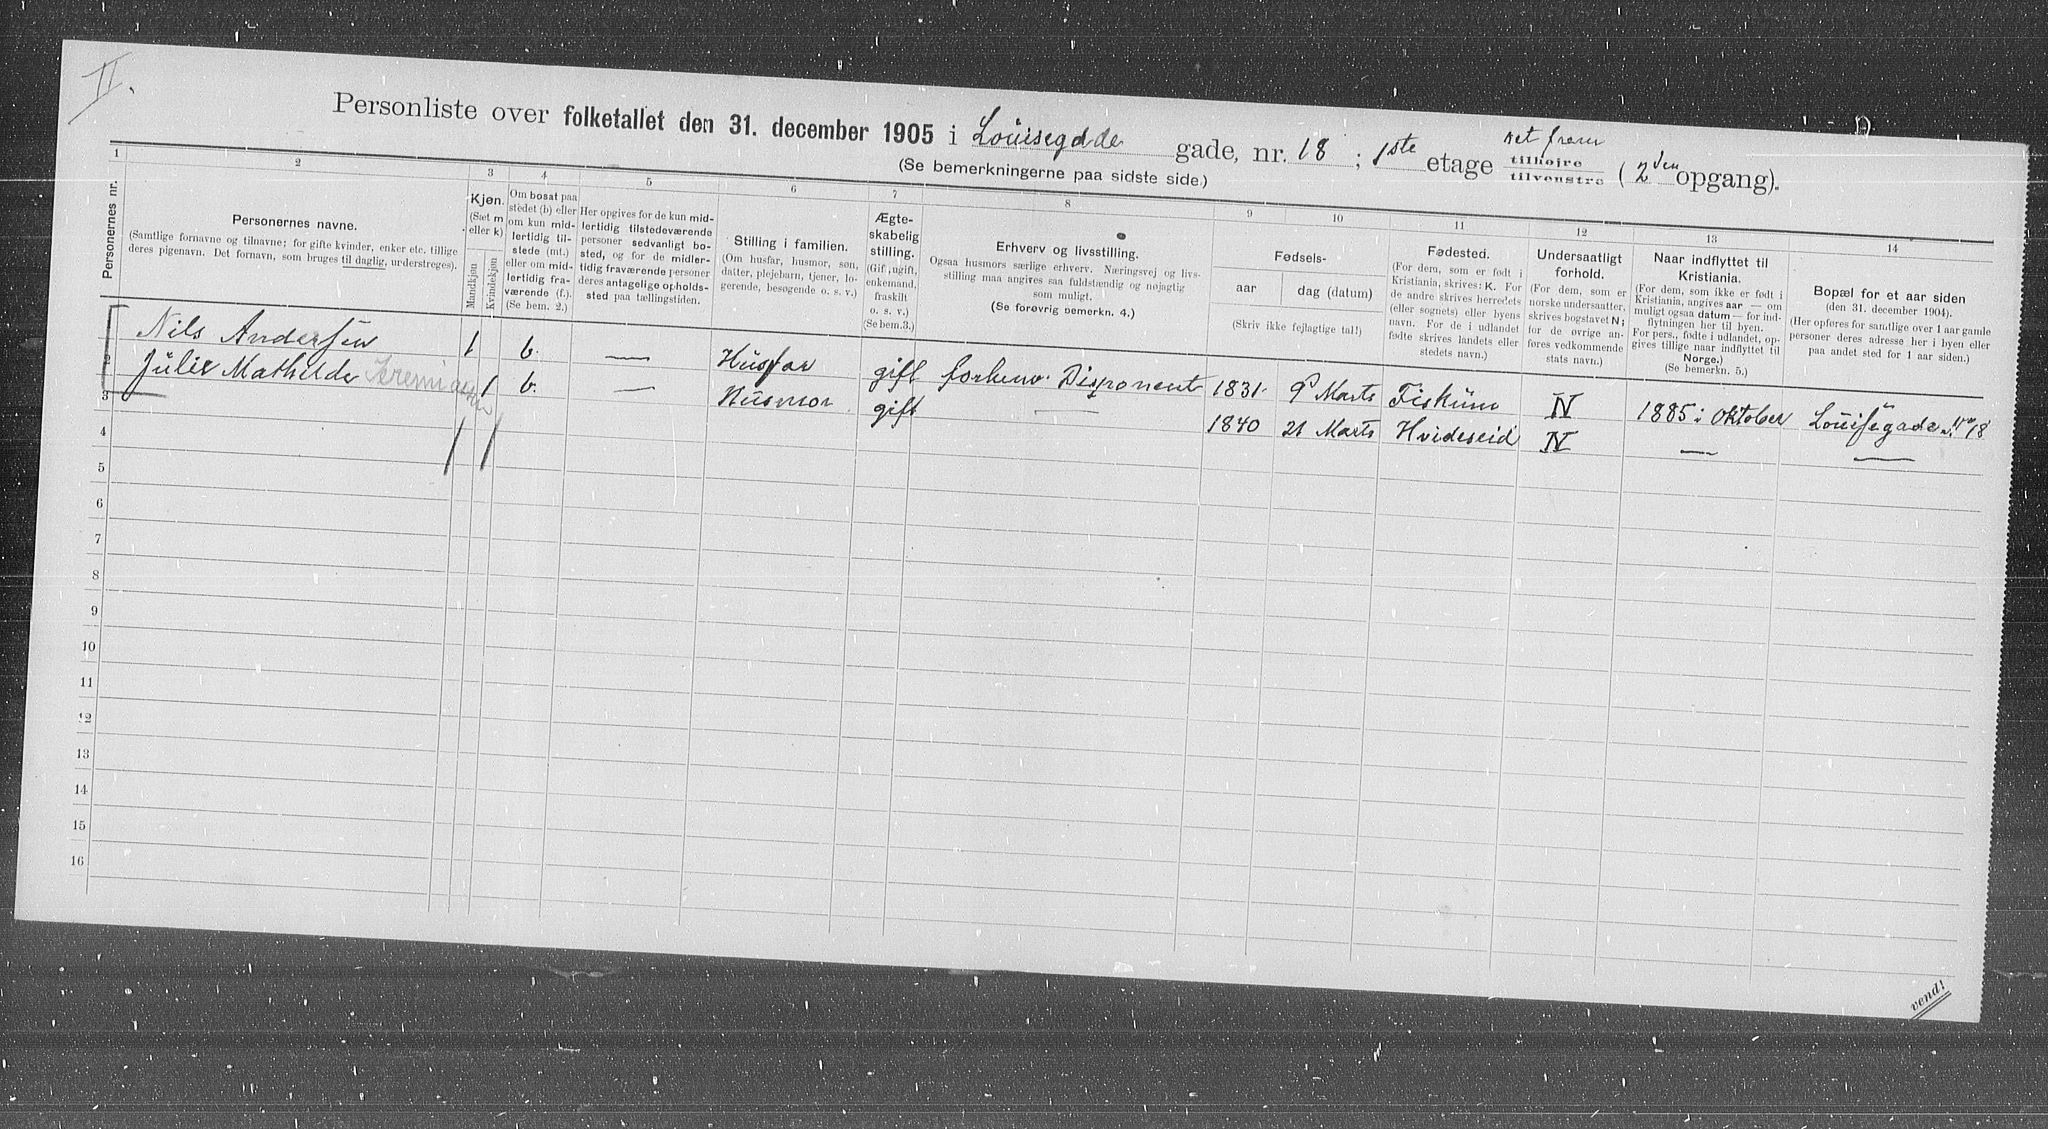 II.
Personliste over folketallet den 31. december 1905 i Louisegade gade, nr. 18 ; 1ste etage tilhøjre tilvenstre (2den opgang).
(Se bemerkningerne paa sidste side.)
1 2 3 4 5 6 7 8 9 10 11 12 13 14
Personernes nr.
Personernes navne.
(Samtlige fornavne og tilnavne; for gifte kvinder, enker etc. tillige
deres pigenavn. Det fornavn, som bruges til daglig, understreges).
Kjøn.
(Sæt m
eller k)
Mandkjøn
Kvindekjøn
Om bosat paa
stedet (b) eller
om kun mid-
lertidig til-
stede (mt.)
eller om mid-
lertidig fra-
værende (f.).
(Se bem. 2.)
Her opgives for de kun mid-
lertidig tilstedeværende
personer sedvanligt bo-
sted, og for de midler-
tidig fraværende personer
deres antagelige opholds-
sted paa tællingstiden.
Stilling i familien.
(Om husfar, husmor, søn,
datter, plejebarn, tjener, lo-
gerende, besøgende o. s. v.)
Ægte-
skabelig
stilling.
(Gif., ugift,
enkemand,
fraskilt
o. s. v.)
(Se bem.3.)
Erhverv og livsstilling.
Ogsaa husmors særlige erhverv. Næringsvej og livs-
stilling maa angives saa fuldstændig og nøjagtig
som muligt.
(Se forøvrig bemerkn. 4.)
Fødsels-
aar
dag (datum)
(Skriv ikke fejlagtige tal!)
Fødested.
(For dem, som er født i
Kristiania, skrives: K. For
de andre skrives herredets
(eller sognets) eller byens
navn. For de i udlandet
fødte skrives landets eller
stedets navn.)
Undersaatligt
forhold.
(For dem, som er
norske undersaatter,
skrives bogstavet N;
for de øvrige an-
føres vedkommende
stats navn.)
Naar indflyttet til
Kristiania.
(For dem, som ikke er født i
Kristiania, angives aar — om
muligt ogsaa datum — for ind-
flytningen her til byen.
For pers., fødte i udlandet, op-
gives tillige naar indflyttet til
Norge.)
(Se bemerkn. 5.)
Bopæl for et aar siden
(den 31. december 1904).
(Her opføres for samtlige over 1 aar gamle
personer deres adresse her i byen eller
paa andet sted for 1 aar siden.)
Nils Andersen 1 b. — Husfar gift forhenv. Disponent 1831. 9 Marts Fiskum N 1885 i Oktober Louisegade No 18
2 Julie Mathilde 1 b. — Husmor gift — 1840 21 Marts Hvideseid N — —
3
4
5
6
7
8
9
10
11
12
13
14
15
16
vend!